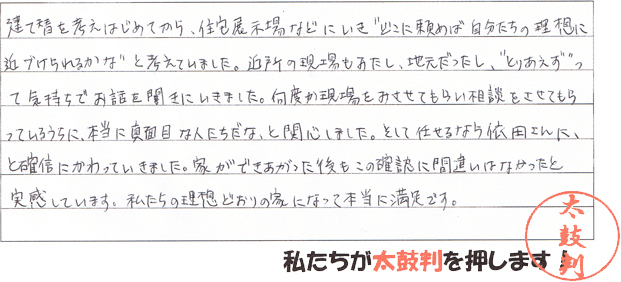 建て替を考えはじめてから、住宅展示場などにいき"どこに頼めば自分たちの理想に
近づけられるかな"と考えていました。近所の現場もあたし、地元だったし、"とりあえず"っ
て気持ちでお話を聞きにいきました。何度か現場をみさせてもらい相談をさせてもら
っているうちに、本当に真面目な人たちだな、と関心しました。そして任せるなら依田さんに、
と確信にかわっていきました。家ができあがった後もこの確認に間違いはなかったと
実感しています。私たちの理想どおりの家になって本当に満足です。
私たちが太鼓判を押します!
太鼓判